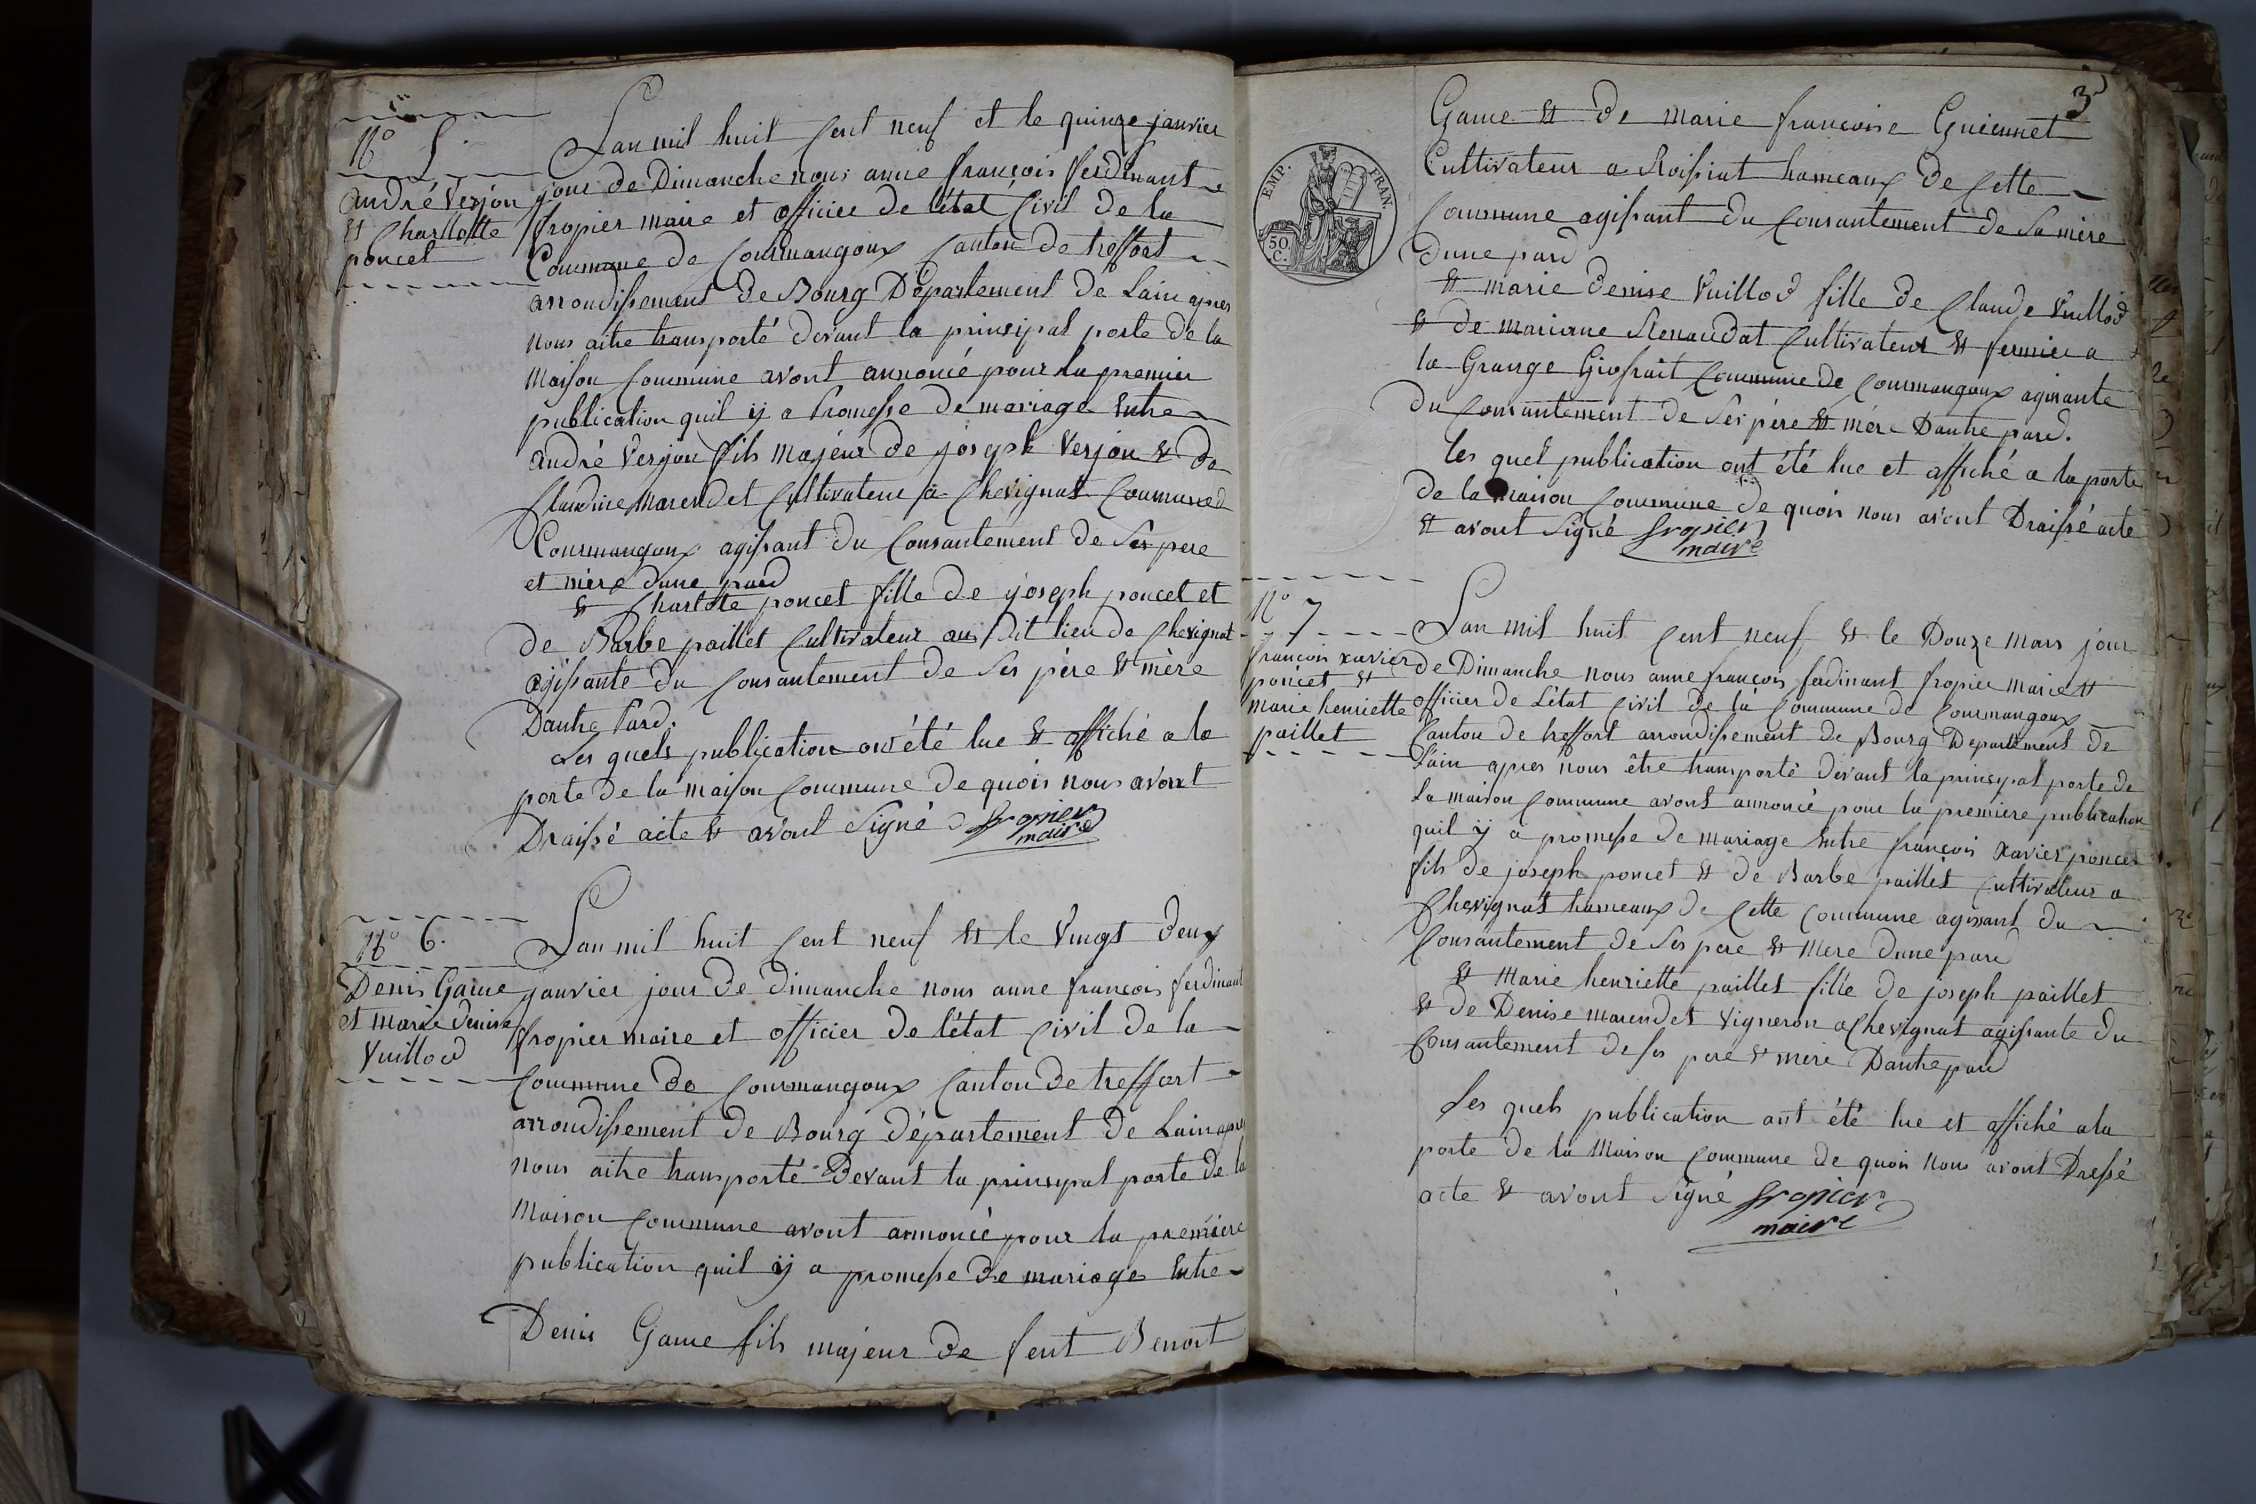 No 5.
andré Verjon
et Charllotte
poncet
Lan mil huit Cent neuf et le quinze janvier
jour de Dimanche nous anne françois ferdinant
fropier maire et officier de létat Civil de la
Commune de Courmangoux Canton de treffort
arrondissement de Bourg Département de Lain apres
nous aitre transporté devant la principal porte de la
maison Commune avont annoncé pour la premier
publication quil ÿ a Promesse de mariage Entre
andré Verjon fils majeur de joseph Verjon & de
Claudine Marendet Cultivateur a Chevignat Commune d
Courmangoux agissant du Consantement de Ses pere
et mère dune pard
& Charlote poncet fille de joseph poncet et
de Barbe paillet Cultivateur au dit lieu de Chevignat
agissante du Consantement de Ses père & mère
Dautre Pard.
Les quels publication ont été lue & affiché a la
porte de la maison Commune de quois nous avont
Draissé acte & avont Signé fropier
maire
No 6.
Denis Game
et Marie denise
Vuillod
Lan mil huit Cent neuf & le Vingt deux
janvier jour de dimanche nous anne françois ferdinant
fropier maire et officier de létat Civil de la
Commune de Courmangoux Canton de treffort
arrondissement de Bourg département de Lain apres
nous aitre transporté Devant la principal porte de la
Maison Commune avont annoncé pour la premiere
publication quil ÿ a promesse de mariage Entre
Denis Game fils majeur de feut Benoit
3
EMP. FRAN.
50 C.
Game & de marie francoise Guiennet
Cultivateur a Roissiat hameaux de Cette
Commune agissant du Consantement de Sa mère
dune pard
& marie denise Vuillod fille de Claude Vuillod
& de mariane Renaudat Cultivateur & fermier a
la Grange Commune de Courmangoux agissante
du Consantement de Ses père & mère Dautre pard.
les quel publication ont été lue et affiché a la porte
de la maison Commune de quois nous avont Draissé acte
& avont Signé fropier
maire
No 7
françois xavier
poncet &
marie henriette
paillet
Lan mil huit Cent neuf & le Douze mars jour
de Dimanche nous anne françois ferdinant fropier maire &
officier de Létat Civil de la Commune de Courmangoux
Canton de treffort arrondissement de Bourg Departement de
Lain apres nous être transporté devant la principal porte de
la maison Commune avont annoncé pour la premiere publication
quil ÿ a promesse de mariage Entre françois Xavier poncet
fils de joseph poncet & de Barbe paillet Cultivateur a
Chevignat hameaux de Cette Commune agissant du
Consantement de Ses pere & mere dune pard
& Marie henriette paillet fille de joseph paillet
& de Denise marendet Vigneron a Chevignat agissante du
Consantement de ses pere & mere Dautre pard
Les quels publication ont été lue et affiché a la
porte de la Maison Commune de quois nous avont Dressé
acte & avont Signé fropier
maire